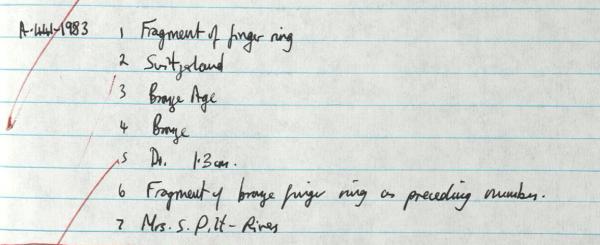 A.441-1983 1 Fragment of finger ring
2 Switzerland
3 Bronze Age
4 Bronze
5 Di. 1.3 cm.
6 Fragment of bronze finger ring as preceding number.
7 Mrs. S. Pitt-Rivers